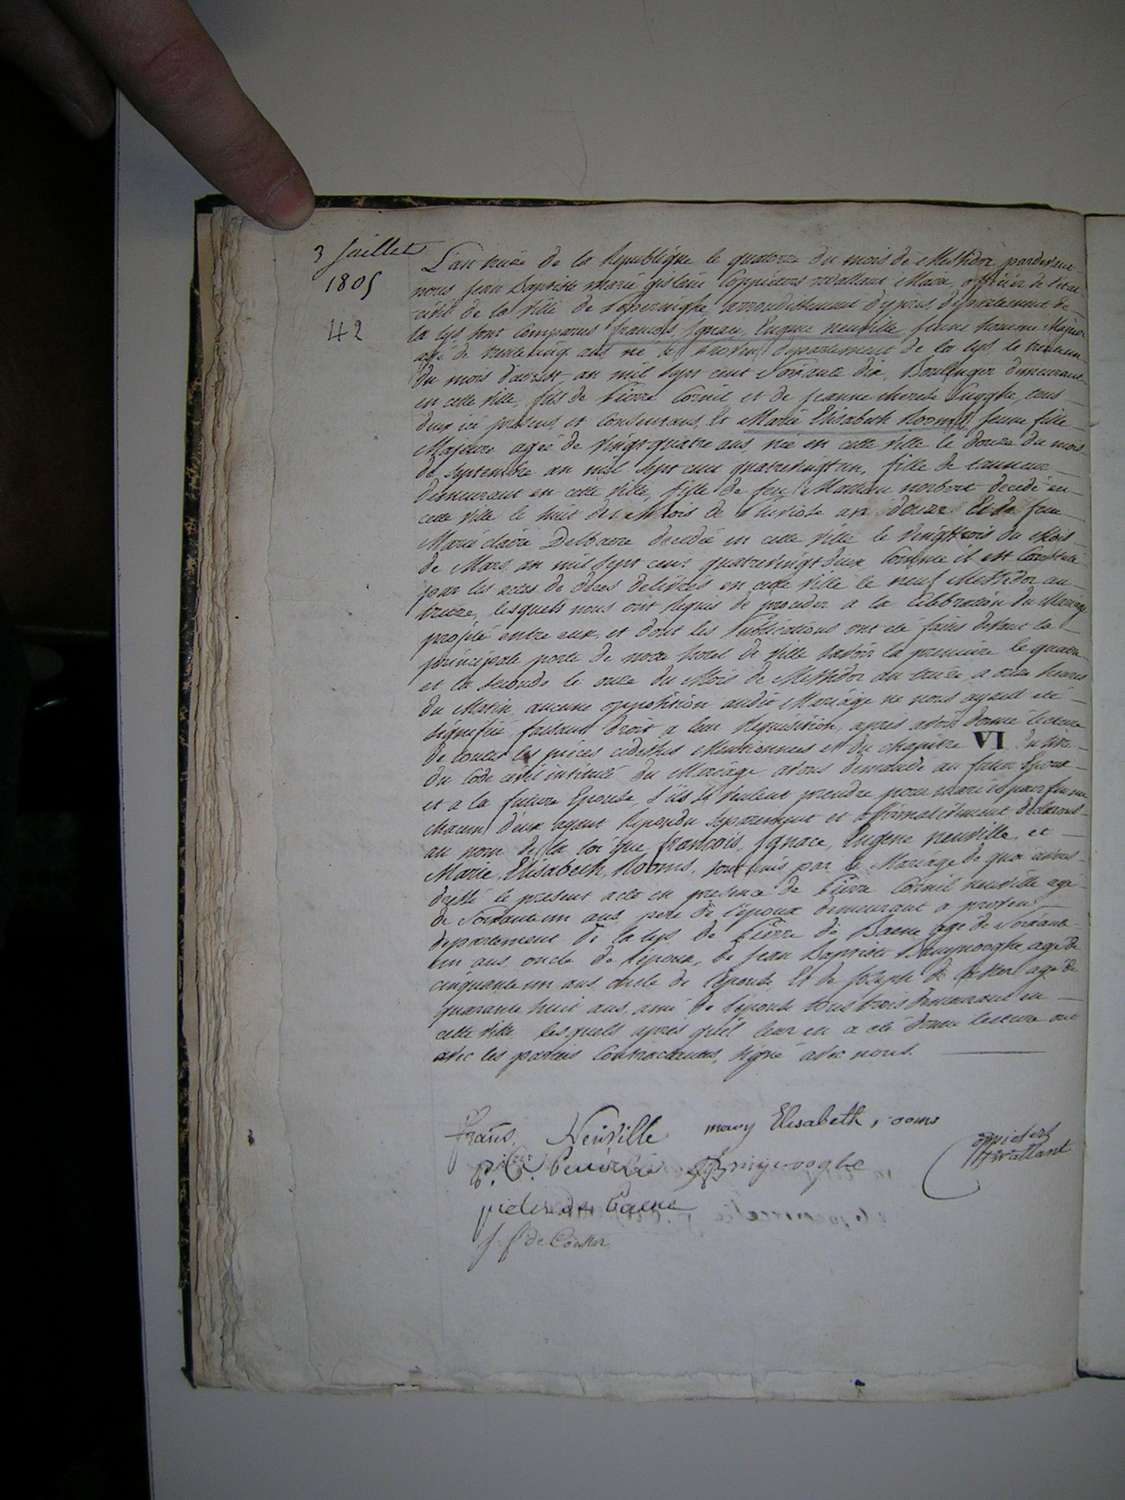 3 Juillet
1805
42
L'an treize de la Republique le quatorze du mois de Messidor pardevant
nous Jean Baptiste Marie Gislain Coppieters Maire, officier de l'etat
civil de la ville de Poperinghe arrondissement d'ypres departement de
la Lys sont comparus François Ignace Eugene Neuville jeune homme Majeur
agé de trente cinq ans né à Proven departement de la Lys le
du mois d'aoust an mil sept cent soixante dix, Boulanger demeurant
en cette ville, fils de Pierre Cornil et de Jeanne Therese tous
deux ici presens et consentans, et Marie Elisabeth Rooms jeune fille
Majeure agée de vingt quatre ans, née en cette ville le douze du mois
de Septembre an mil sept cent quatrevingt un, fille de
demeurant en cette ville, fille de feu Matthieu norbert decedé en
cette ville le huit du Mois de Pluviose an douze et de feue
Marie claire DeBaene decedée en cette ville le vingt trois du Mois
de Mars an mil sept cent quatrevingt deux, comme il est constaté
par les actes de deces delivrés en cette ville le neuf Messidor an
treize, lesquels nous ont requis de proceder à la Celebration du Mariage
projeté entre eux, et dont les Publications ont été faites devant la
principale porte de notre hotel de ville savoir la premiere le quatre
et la seconde le onze du Mois de Messidor an treize, a onze heures
du Matin, aucune opposition audit Mariage ne nous ayant été
signifiée, faisant droit a leur Requisition, après avoir donné lecture
de toutes les pieces cidessus Mentionnées et du chapitre VI du titre
du Code civil intitulé du Mariage avons demandé au futur Epoux
et a la future Epouse, s'ils se veulent prendre pour Mari et pour femme
chacun d'eux ayant repondu separement et affirmativement declarons
au nom de la loi que François, Ignace, Eugene Neuville, et
Marie, Elisabeth, Rooms, sont unis par le Mariage de quoi avons
dressé le present acte en presence de Pierre Cornil neuville agé
de Soixante un ans, pere de l'époux demeurant a proven
departement de la Lys de Pierre de Baene agé de Soixante
un ans, oncle de l'épouse, de Jean Baptiste agé de
cinquante un ans oncle de l'épouse et de Joseph de Coster agé de
quarante huit ans, ami de l'épouse tous trois demeurans en
cette ville lesquels après qu'il leur en a été donné lecture ont
avec les parties Contractantes, signé avec nous.
frans. Neuville mary Elisabeth, rooms
P. C. Neuville
pieter de Baene
J. f. de Coster